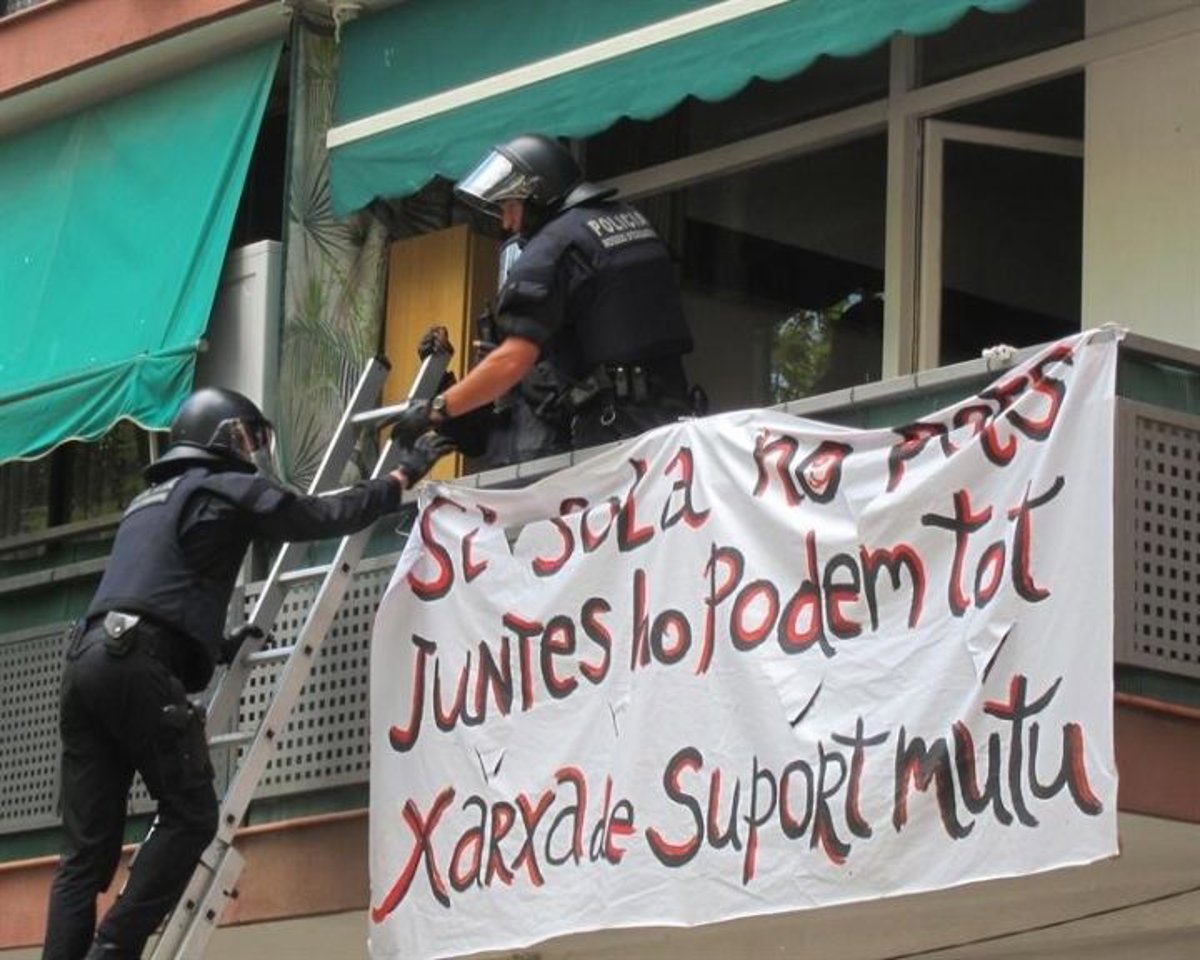 POLICIA
MOSSOS D'ESQUADRA
Si sola no pots
Juntes ho podem tot
Xarxa de Suport mutu